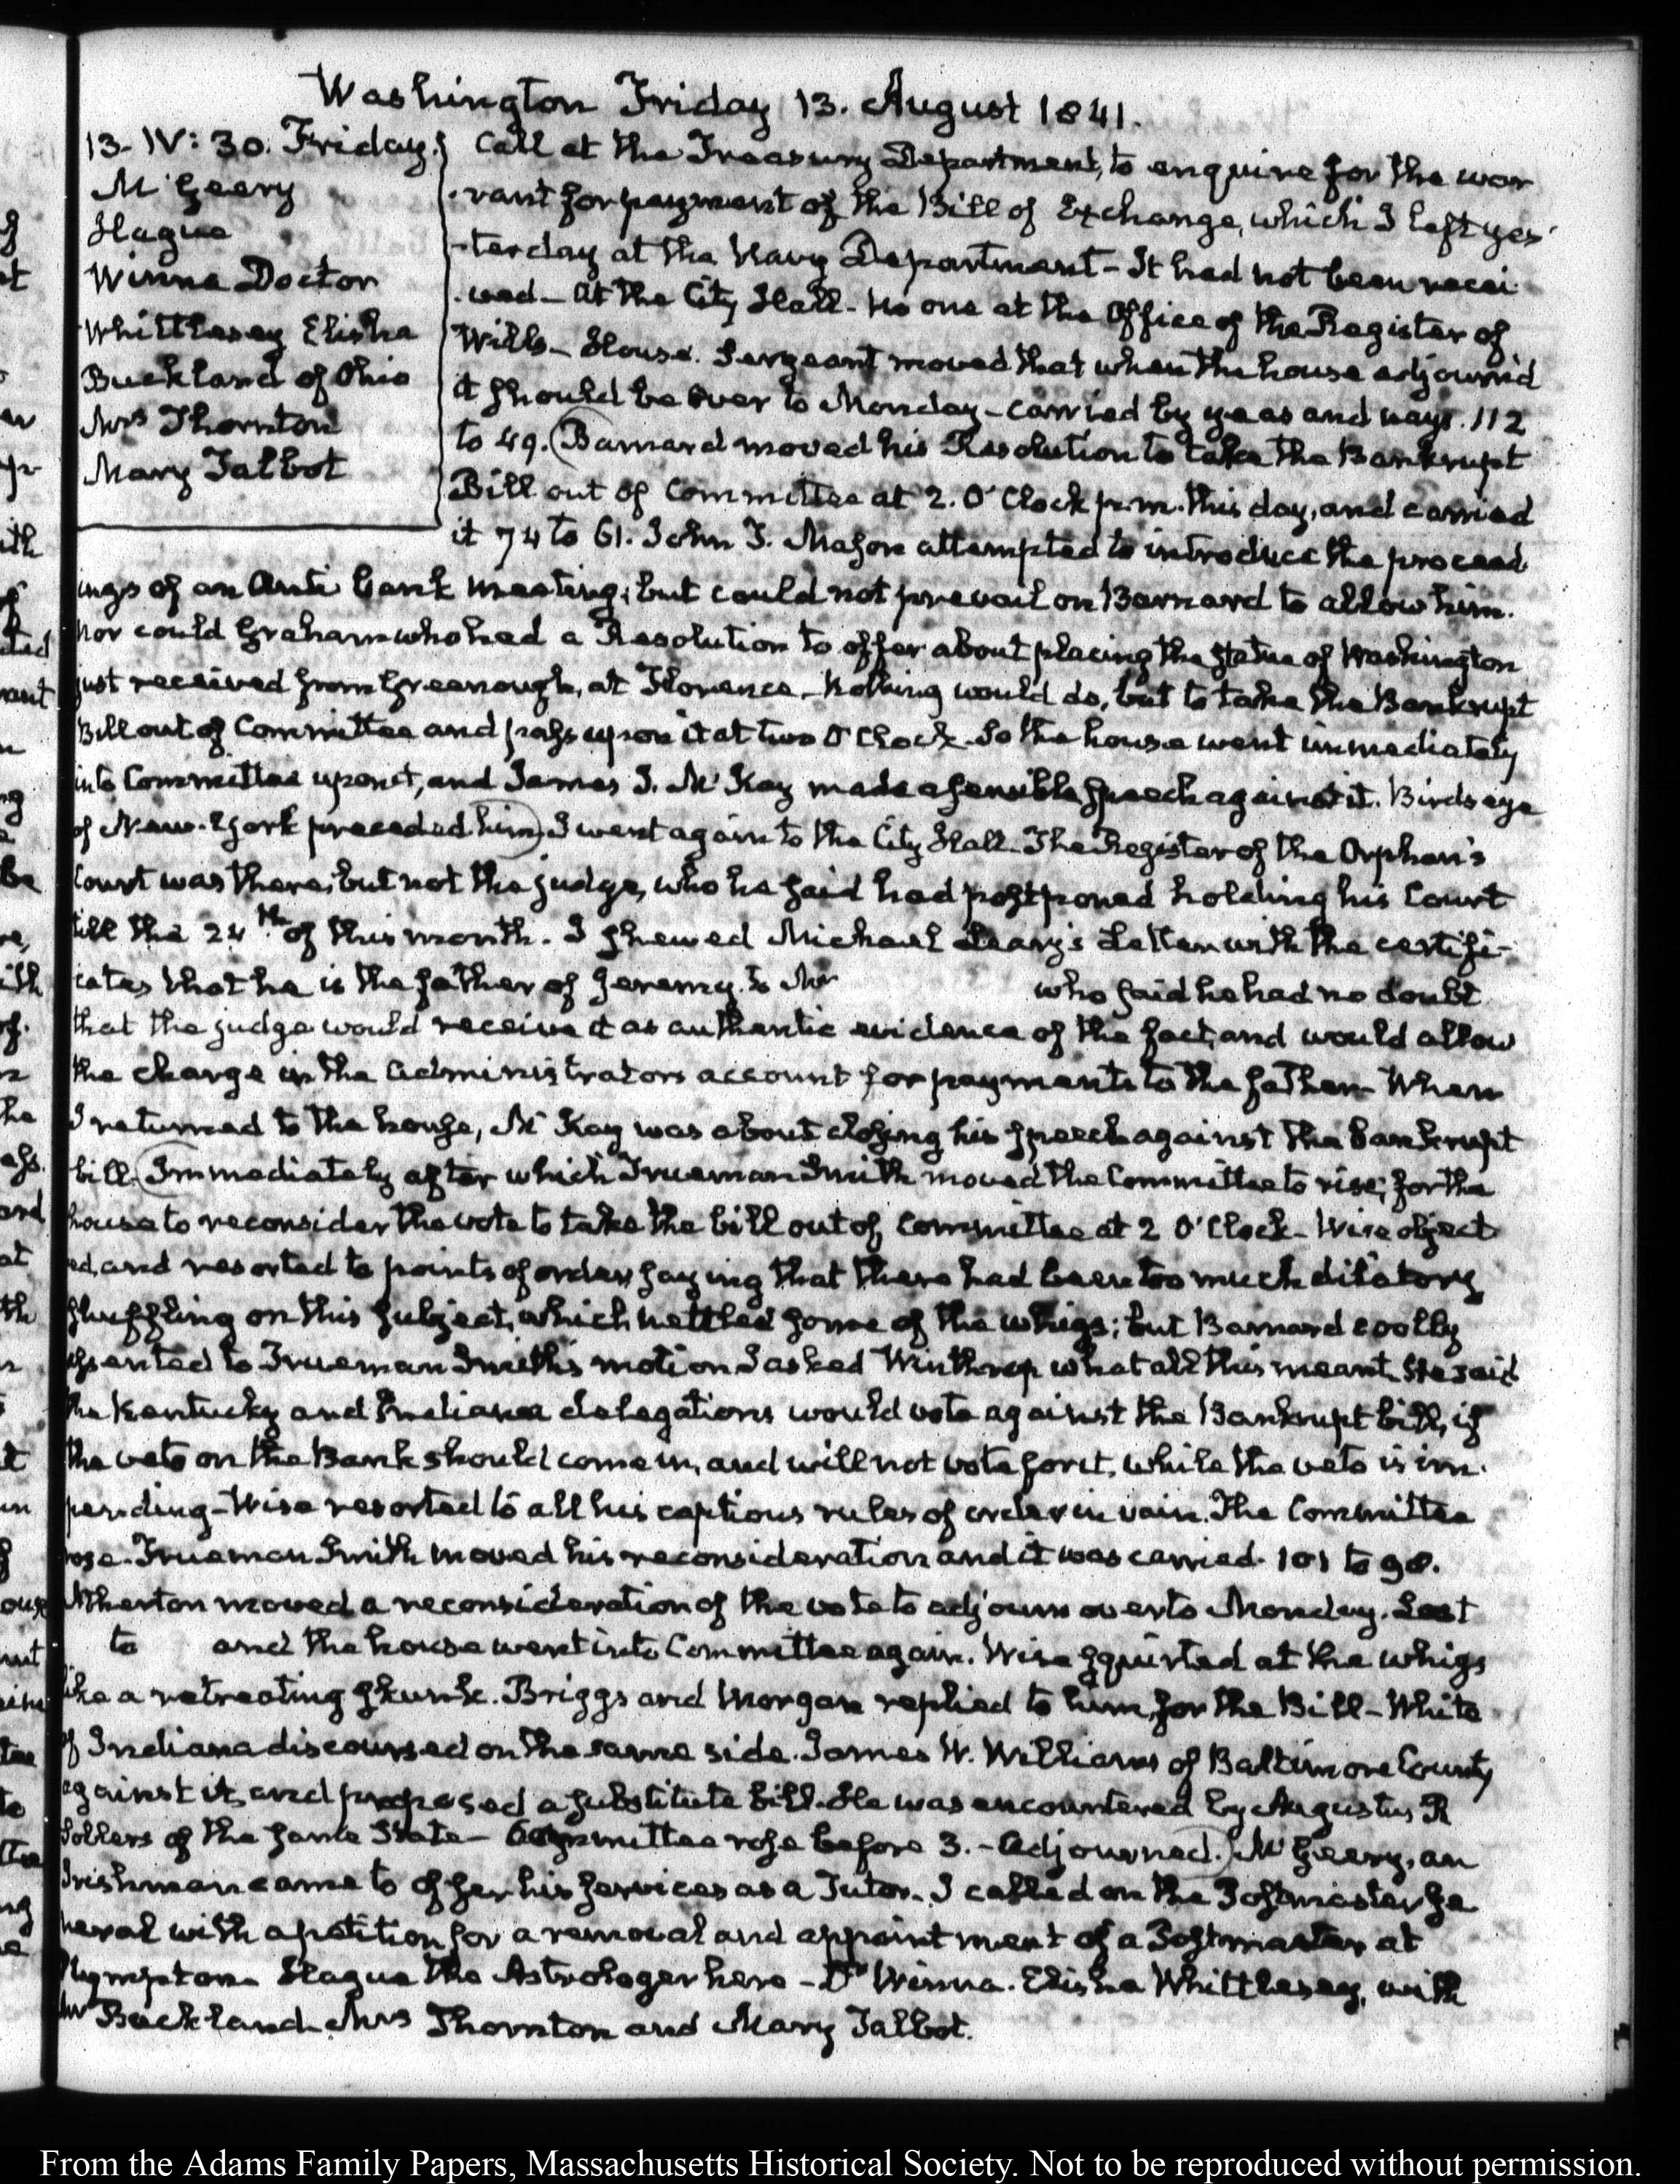 Washington Friday 13. August 1841.
13. IV: 30. Friday.
M'Geery
Hague
Winne Doctor
Whittlesey Elisha
Buckland of Ohio
Mrs Thornton
Mary Talbot
Call at the Treasury Department, to enquire for the war
rant for payment of the Bill of Exchange, which I left yes
terday at the Navy Department - It had not been recei
ved - At the City Hall - No one at the Office of the Register of
Wills - House. Sergeant moved that when the house adjourn'd
it should be over to Monday - carried by yeas and nays. 112
to 49. Barnard moved his Resolution to take the Bankrupt
Bill out of Committee at 2. O'Clock p.m. this day, and carried
it 74 to 61. John T. Mason attempted to introduce the proceed
ings of an Anti bank meeting; but could not prevail on Barnard to allow him.
nor could Graham who had a Resolution to offer about placing the statue of Washington
just received from Greenough, at Florence - Nothing would do, but to take the Bankrupt
Bill out of Committee and pass upon it at two O'Clock. So the house went immediately
into Committee upon it, and James J. McKay made a sensible speech against it. Birdseye
of New-York preceded him. I went again to the City Hall. The Register of the Orphan's
Court was there, but not the judge, who he said had postponed holding his Court
till the 24th of this month. I shewed Michael Leary's Letter with the certifi
cates that he is the father of Jeremy, to Mr
who said he had no doubt
that the judge would receive it as authentic evidence of the fact, and would allow
the charge in the Administrators account for payments to the father - When
I returned to the house, McKay was about closing his speech against the bankrupt
bill. Immediately after which Trueman Smith moved the Committee to rise; for the
house to reconsider the vote to take the bill out of Committee at 2 O'Clock - Wise object
ed, and resorted to points of order, saying that there had been too much dilatory
shuffling on this subject, which nettled some of the whigs; but Barnard coolly
assented to Trueman Smith's motion I asked Winthrop what all this meant. He said
the Kentucky and Indiana delegations would vote against the Bankrupt bill, if
the veto on the Bank should come in, and will not vote for it, while the veto is im
pending - Wise resorted to all his captious rules of order in vain. The Committee
rose. Trueman Smith moved his reconsideration and it was carried. 101 to 98.
Atherton moved a reconsideration of the vote to adjourn over to Monday. Lost
to and the house went into Committee again. Wise squirted at the whigs
like a retreating skunk. Briggs and Morgan replied to him, for the Bill - White
of Indiana discoursed on the same side. James W. Williams of Baltimore County
against it, and proposed a substitute bill. He was encountered by Augustus R
Sollers of the same State - Committee rose before 3. - Adjourned. McGeery, an
Irishman came to offer his services as a Tutor. I called on the Postmaster Ge
neral with a petition for a removal and appointment of a Postmaster at
Plympton. Hague the Astrologer here - Dr Winne. Elisha Whittlesey, with
Mr Buckland. Mrs Thornton and Mary Talbot.
From the Adams Family Papers, Massachusetts Historical Society. Not to be reproduced without permission.